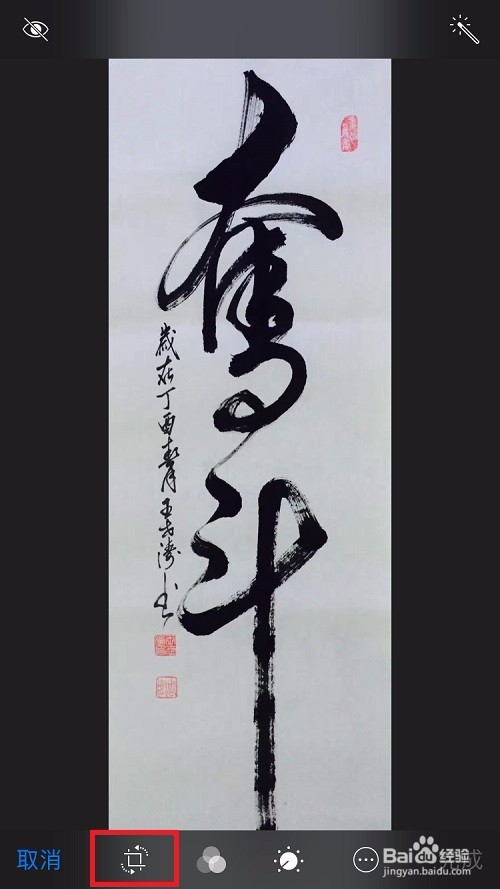 奮斗
歲在丁酉春月王世涛书
取消
完成
Baidu经验
jingyan.baidu.com